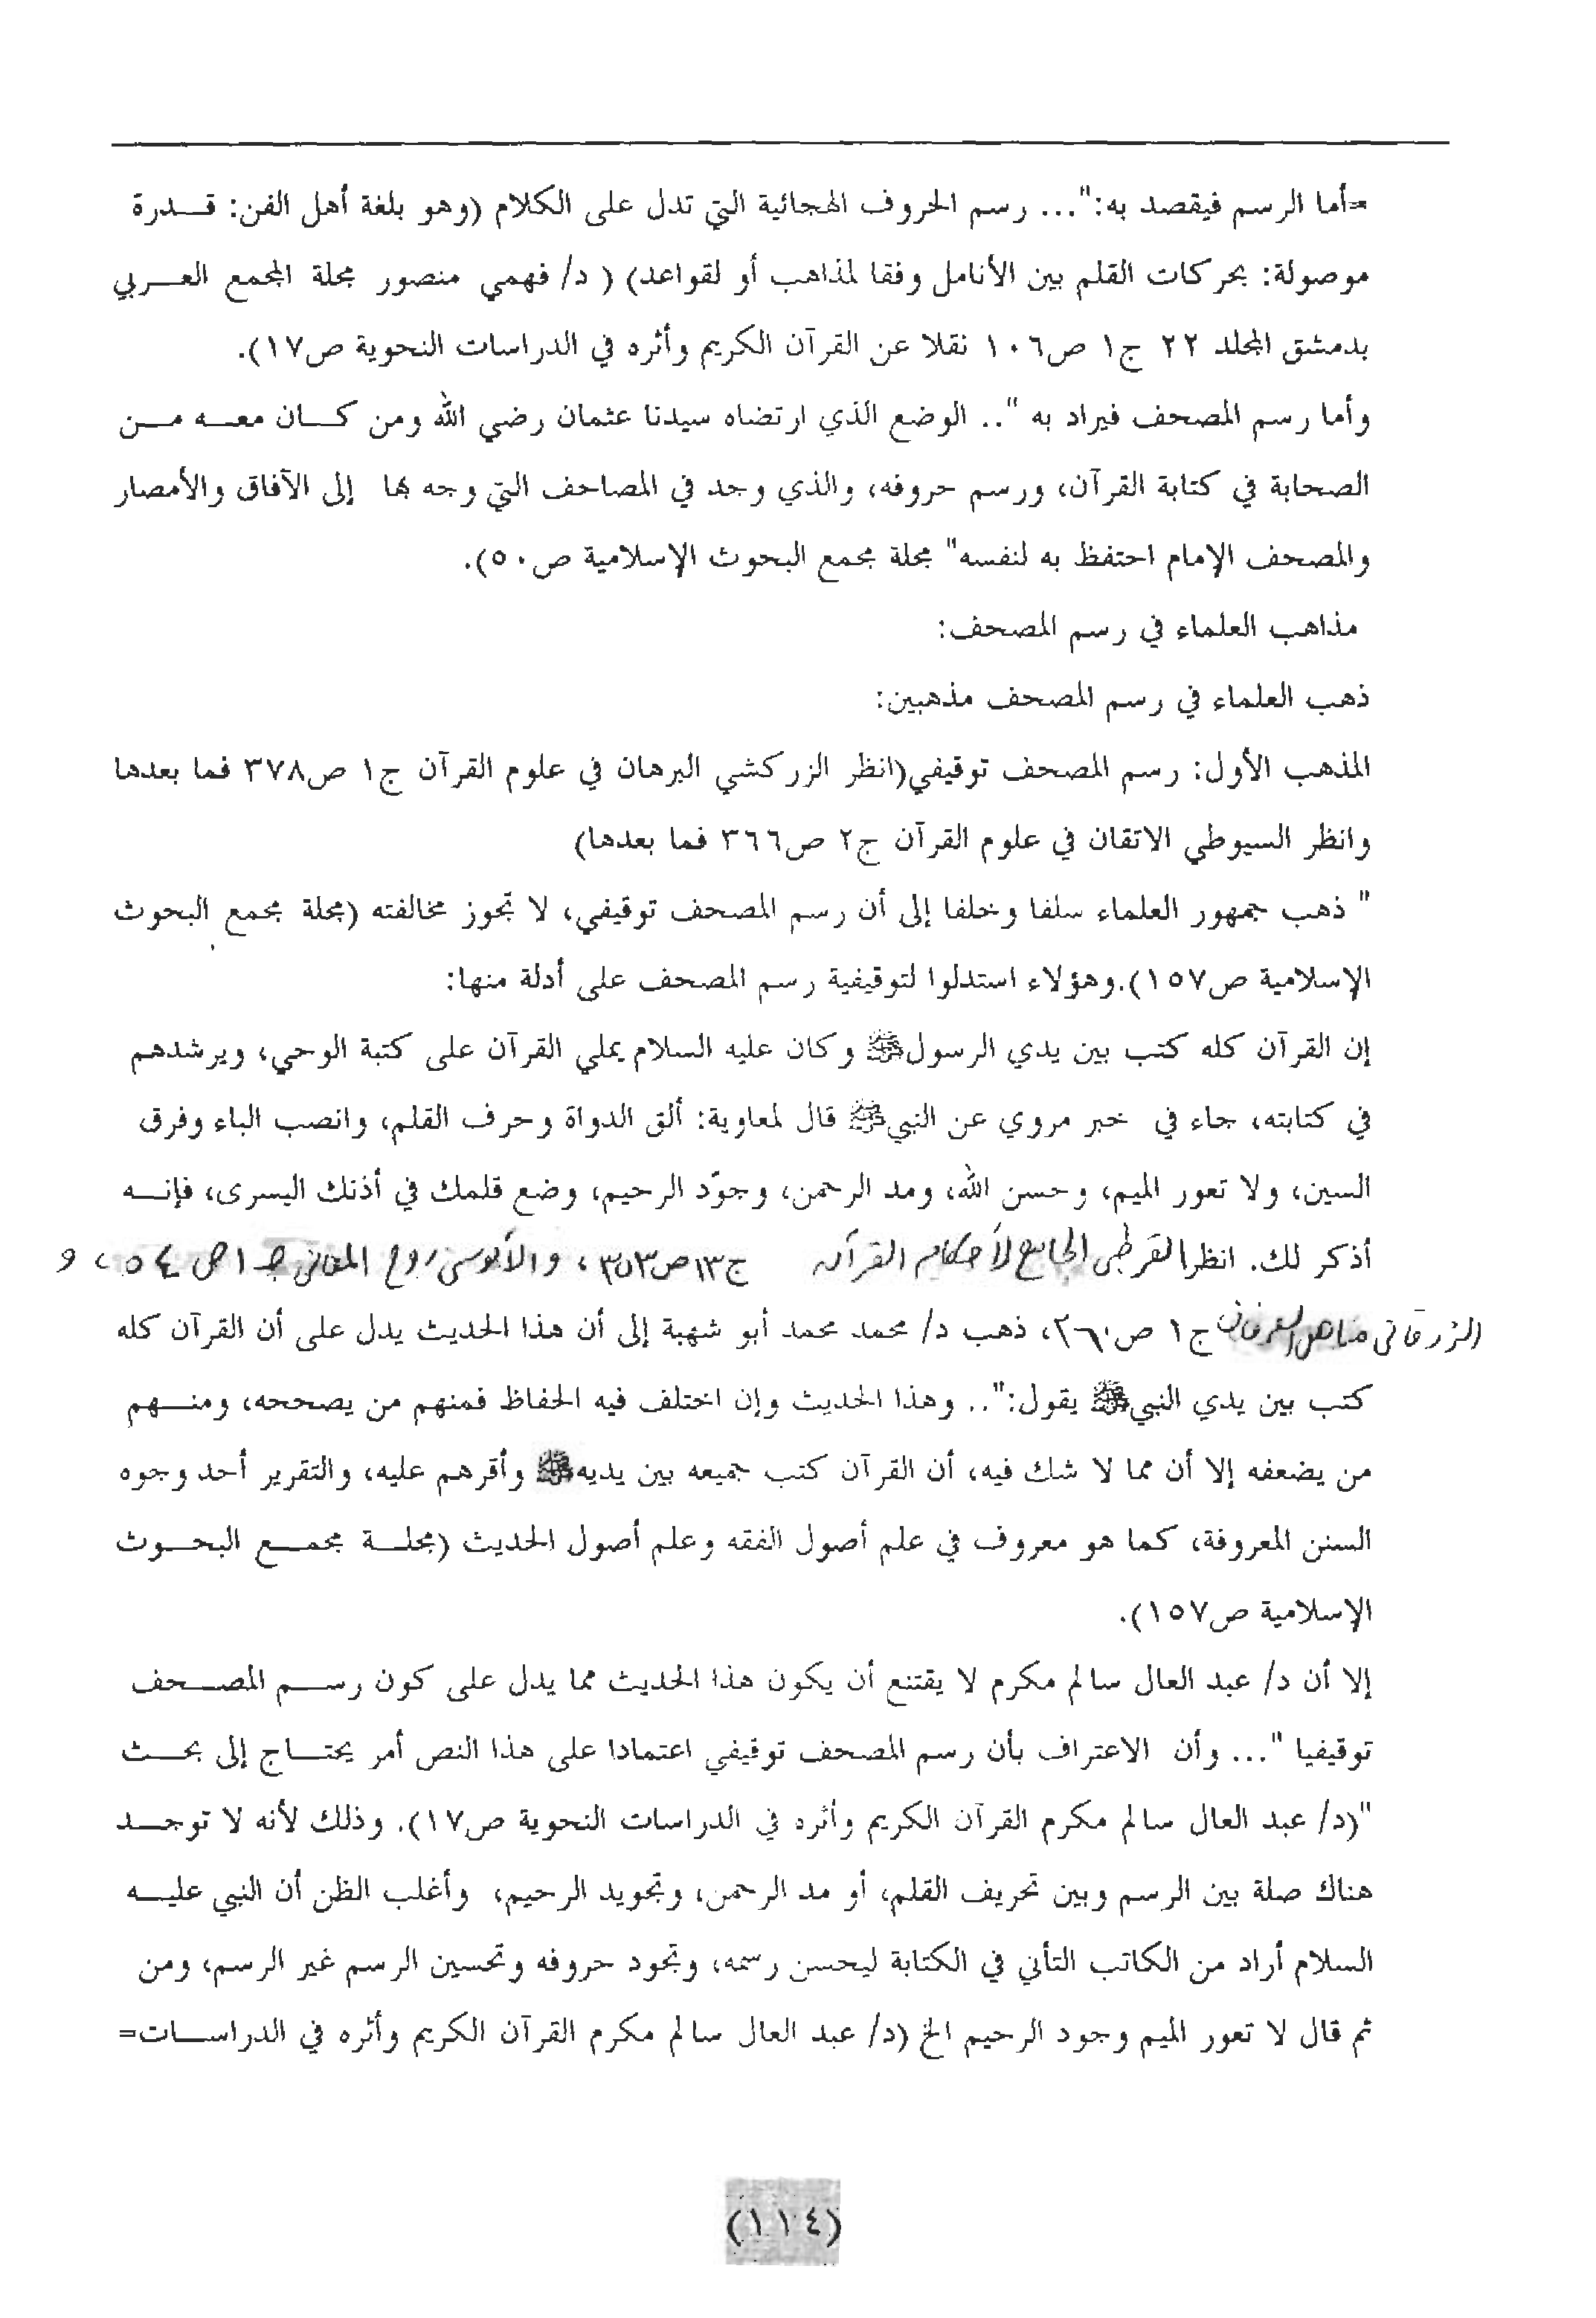 =أما الرسم فيقصد به:"... رسم الحروف الهجائية التي تدل على الكلام (وهو بلغة أهل الفن: قـــدرة
موصولة: بحركات القلم بين الأنامل وفقا لمذاهب أو لقواعد) ( د/ فهمي منصور مجلة المجمع العـــربي
بدمشق المجلد ٢٢ ج١ ص١٠٦ نقلا عن القرآن الكريم وأثره في الدراسات النحوية ص١٧).
وأما رسم المصحف فيراد به ".. الوضع الذي ارتضاه سيدنا عثمان رضي الله ومن كـــان معـــه مـــن
الصحابة في كتابة القرآن، ورسم حروفه، والذي وجد في المصاحف التي وجه بها إلى الآفاق والأمصار
والمصحف الإمام احتفظ به لنفسه" مجلة مجمع البحوث الإسلامية ص٥٠).
مذاهب العلماء في رسم المصحف:
ذهب العلماء في رسم المصحف مذهبين:
المذهب الأول: رسم المصحف توقيفي(انظر الزركشي البرهان في علوم القرآن ج١ ص٣٧٨ فما بعدها
وانظر السيوطي الاتقان في علوم القرآن ج٢ ص٣٦٦ فما بعدها)
" ذهب جمهور العلماء سلفا وخلفا إلى أن رسم المصحف توقيفي، لا تجوز مخالفته (مجلة مجمع البحوث
الإسلامية ص١٥٧).وهؤلاء استدلوا لتوقيفية رسم المصحف على أدلة منها:
إن القرآن كله كتب بين يدي الرسولﷺ وكان عليه السلام يملي القرآن على كتبة الوحي، ويرشدهم
في كتابته، جاء في خبر مروي عن النبيﷺ قال لمعاوية: ألق الدواة وحرف القلم، وانصب الباء وفرق
السين، ولا تعور الميم، وحسن الله، ومد الرحمن، وجوّد الرحيم، وضع قلمك في أذنك اليسرى، فإنـــه
أذكر لك. انظر القرطبي الجامع لأحكام القرآن ج١٣ص٣٥٣، والألوسي روح المعاني جـ ١ ص ٥٤، و
الزرقاني مناهل العرفان ج١ ص٣٦٠، ذهب د/ محمد محمد أبو شهبة إلى أن هذا الحديث يدل على أن القرآن كله
كتب بين يدي النبيﷺ يقول:".. وهذا الحديث وإن اختلف فيه الحفاظ فمنهم من يصححه، ومنـــهم
من يضعفه إلا أن مما لا شك فيه، أن القرآن كتب جميعه بين يديهﷺ وأقرهم عليه، والتقرير أحد وجوه
السنن المعروفة، كما هو معروف في علم أصول الفقه وعلم أصول الحديث (مجلـــة مجمـــع البحـــوث
الإسلامية ص١٥٧).
إلا أن د/ عبد العال سالم مكرم لا يقتنع أن يكون هذا الحديث مما يدل على كون رســـم المصـــحف
توقيفيا "... وأن الاعتراف بأن رسم المصحف توقيفي اعتمادا على هذا النص أمر يحتـــاج إلى بحـــث
"(د/ عبد العال سالم مكرم القرآن الكريم وأثره في الدراسات النحوية ص١٧). وذلك لأنه لا توجـــد
هناك صلة بين الرسم وبين تحريف القلم، أو مد الرحمن، وتجويد الرحيم، وأغلب الظن أن النبي عليـــه
السلام أراد من الكاتب التأني في الكتابة ليحسن رسمه، وتجود حروفه وتحسين الرسم غير الرسم، ومن
ثم قال لا تعور الميم وجود الرحيم الخ (د/ عبد العال سالم مكرم القرآن الكريم وأثره في الدراســـات=
(١١٤)